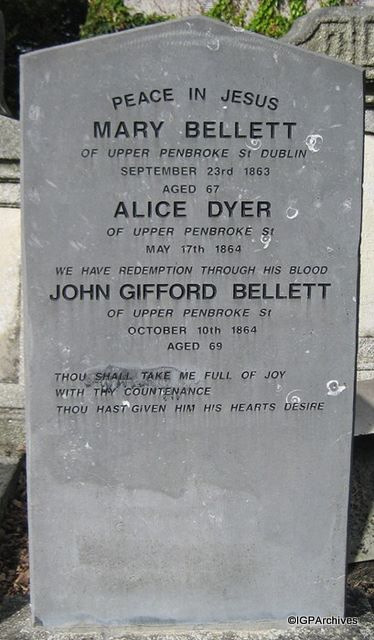 PEACE IN JESUS
MARY BELLETT
OF UPPER PENBROKE St DUBLIN
SEPTEMBER 23rd 1863
AGED 67
ALICE DYER
OF UPPER PENBROKE St
MAY 17th 1864
WE HAVE REDEMPTION THROUGH HIS BLOOD
JOHN GIFFORD BELLETT
OF UPPER PENBROKE St
OCTOBER 10th 1864
AGED 69
THOU SHALL TAKE ME FULL OF JOY
WITH THY COUNTENANCE
THOU HAST GIVEN HIM HIS HEARTS DESIRE
©IGPArchives